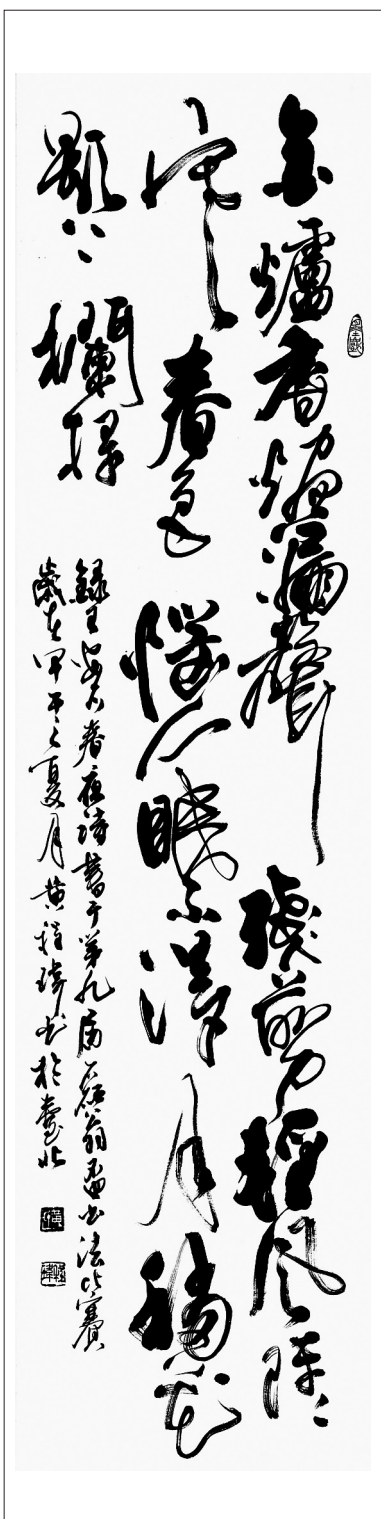 金爐香燼漏聲殘剪輕風陣陣
寒春色惱人眠不得月移花
影上欄桿
錄王安石春夜詩書于第九屆翁盃書法比賽
歲在甲午之夏月黃程瑋書於臺北